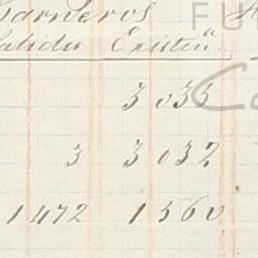 Carneros
Salida Existenª
3035
3 3032
1472 1560
FU
Ca